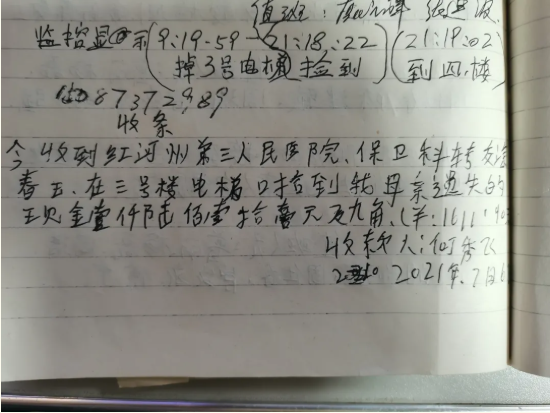 值班:
监控显示(9:19.59-21:18:22)(21:19:02
掉3号电梯 捡到 到四楼
15087372989
收条
今收到红河州第三人民医院、保卫科转交
春玉、在三号楼电梯口拾到我母亲遗失的
现金壹仟陆佰壹拾壹元及九角、(羊:1611.90
收款人:何秀
2021年7月6